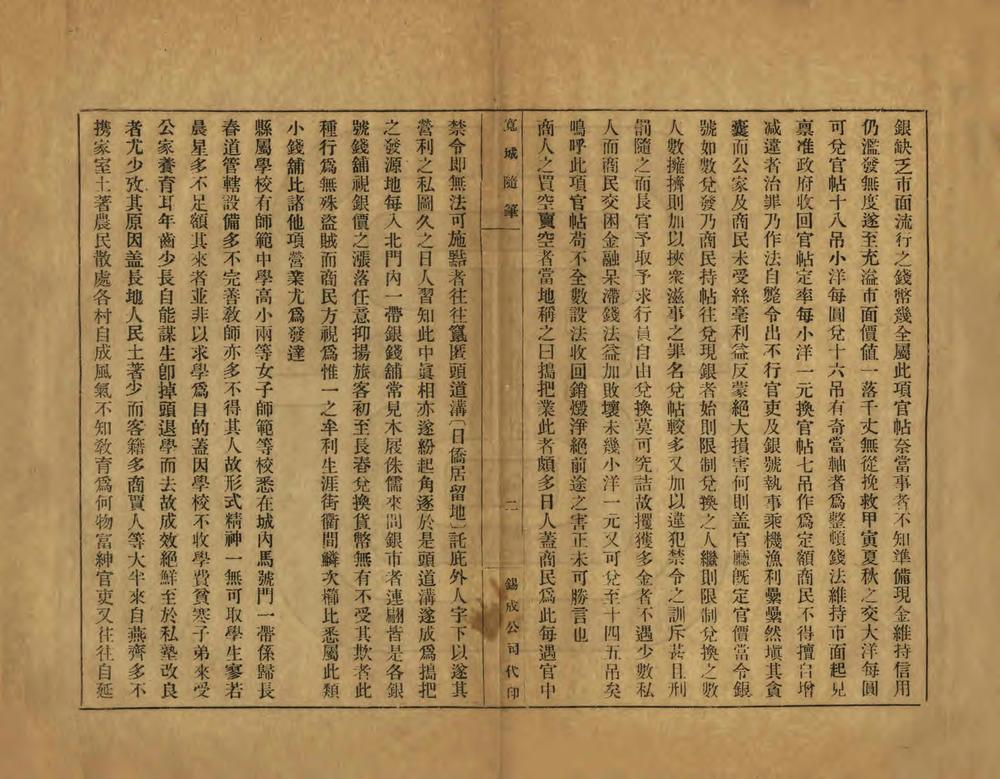 銀缺乏市面流行之錢幣幾全屬此項官帖奈當事者不知準備現金維持信用
仍濫發無度遂至充溢市面價値一落千丈無從挽救甲寅夏秋之交大洋每圓
可兌官帖十八吊小洋每圓兌十六吊有奇當軸者爲整頓錢法維持市面起見
禀准政府收回官帖定率每小洋一元換官帖七吊作爲定額商民不得擅自增
减違者治罪乃作法自斃令出不行官吏及銀號執事乘機漁利纍纍然塡其貪
囊而公家及商民未受絲毫利益反蒙絕大損害何則盖官廳旣定官價當令銀
號如數兌發乃商民持帖往兌現銀者始則限制兌換之人繼則限制兌換之數
人數擁擠則加以挾衆滋事之罪名兌帖較多又加以違犯禁令之訓斥甚且刑
罰隨之而長官予取予求行員自由兌換莫可究詰故攫獲多金者不過少數私
人而商民交困金融呆滯錢法益加敗壞未幾小洋一元又可兌至十四五吊矣
嗚呼此項官帖苟不全數設法收回銷燬淨絕前途之害正未可勝言也
商人之買空賣空者當地稱之曰搗把業此者頗多日人蓋商民爲此每遇官中
寬城隨筆
二
錫成公司代印
禁令即無法可施黠者往往竄匿頭道溝（日僑居留地）託庇外人宇下以遂其
營利之私圖久之日人習知此中眞相亦遂紛起角逐於是頭道溝遂成爲搗把
之發源地每入北門內一帶銀錢舖常見木屐侏儒來問銀市者連翩皆是各銀
號錢舖視銀價之漲落任意抑揚旅客初至長春兌換貨幣無有不受其欺者此
種行爲無殊盜賊而商民方視爲惟一之牟利生涯街衢間鱗次櫛比悉屬此類
小錢舖比諸他項營業尤爲發達
縣屬學校有師範中學高小兩等女子師範等校悉在城內馬號門一帶係歸長
春道管轄設備多不完善敎師亦多不得其人故形式精神一無可取學生寥若
晨星多不足額其來者並非以求學爲目的蓋因學校不收學費貧寒子弟來受
公家養育耳年齒少長自能謀生卽掉頭退學而去故成效絕鮮至於私塾改良
者尤少攷其原因盖長地人民土著少而客籍多商賈人等大半來自燕齊多不
携家室土著農民散處各村自成風氣不知敎育爲何物富紳官吏又往往自延